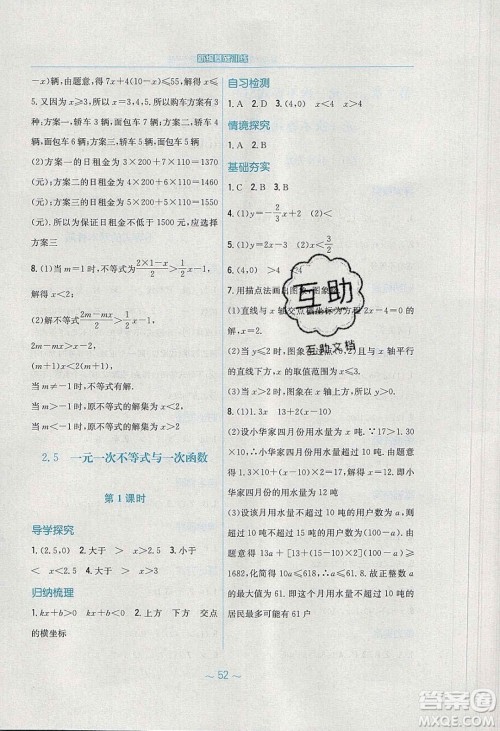 新编基础训练
-x)辆,由题意,得7x+4(10-x)≤55,解得x≤
5.又因为x≥3,所以x=3,4,5.所以购车方案有三
种:方案一:轿车3辆,面包车7辆;方案二:轿车4
辆,面包车6辆;方案三:轿车5辆,面包车5辆
(2)方案一的日租金为3×200+7×110=1370
(元);方案二的日租金为4×200+6×110=1460
(元);方案三的日租金为5×200+5×110=1550
(元);所以为保证日租金不低于1500元,应选择
方案三
8.(1)当m=1时,不等式为(2×1-x)/2>x/2-1,
解得x<2
(2)解不等式(2m-mx)/2>x/2-1,
2m-mx>x-2,
(m+1)x<2(m+1),
当m≠-1时,不等式有解.
当m>-1时,原不等式的解集为x<2;
当m<-1时,原不等式的解集为x>2
2.5 一元一次不等式与一次函数
第1课时
导学探究
1.(2.5,0) 2.大于 > x> 3.大于 >
x< 4.> x>
归纳梳理
1.kx+b>0 kx+b<0 2.上方 下方 交点
的横坐标
自习检测
1.A 2.D 3.(4,0) x<4 x>4
情境探究
1.A 2.A
基础夯实
1.C 2.B 3.A
4.(1)y=-2/3x+2 (2)x>3
5.(1)y=2x-3 (2)x<1/2
6.(4,0) >4 <4
7.用描点法画出图象,图象
(1)直线与x轴交点横坐标为方程
的解.
(2)当y≤2时,图象在点
的直线下方,x的取值范围为x≤0
8.(1)1.3x 13+2(x-10)
(2)设小华家四月份用水量为x吨.∵17>1.30×
10,∴小华家四月份用水量超过10吨.由题意得
1.3×10+(x-10)×2=17,∴2x=24,∴x=12.即
小华家四月份的用水量为12吨
(3)设该月用水量不超过10吨的用户数为a,则超
过10吨不超过15吨的用户数为(100-a).由题
意,得13a+[13+(15-10)×2](100-a)≥
1682,化简,得10a≤618,∴a≤61.8.故正整数a
的最大值为61.即这个月用水量不超过10吨的
居民最多可能有61户
互助
互助文档
～52～
答案圈
MXQE.COM